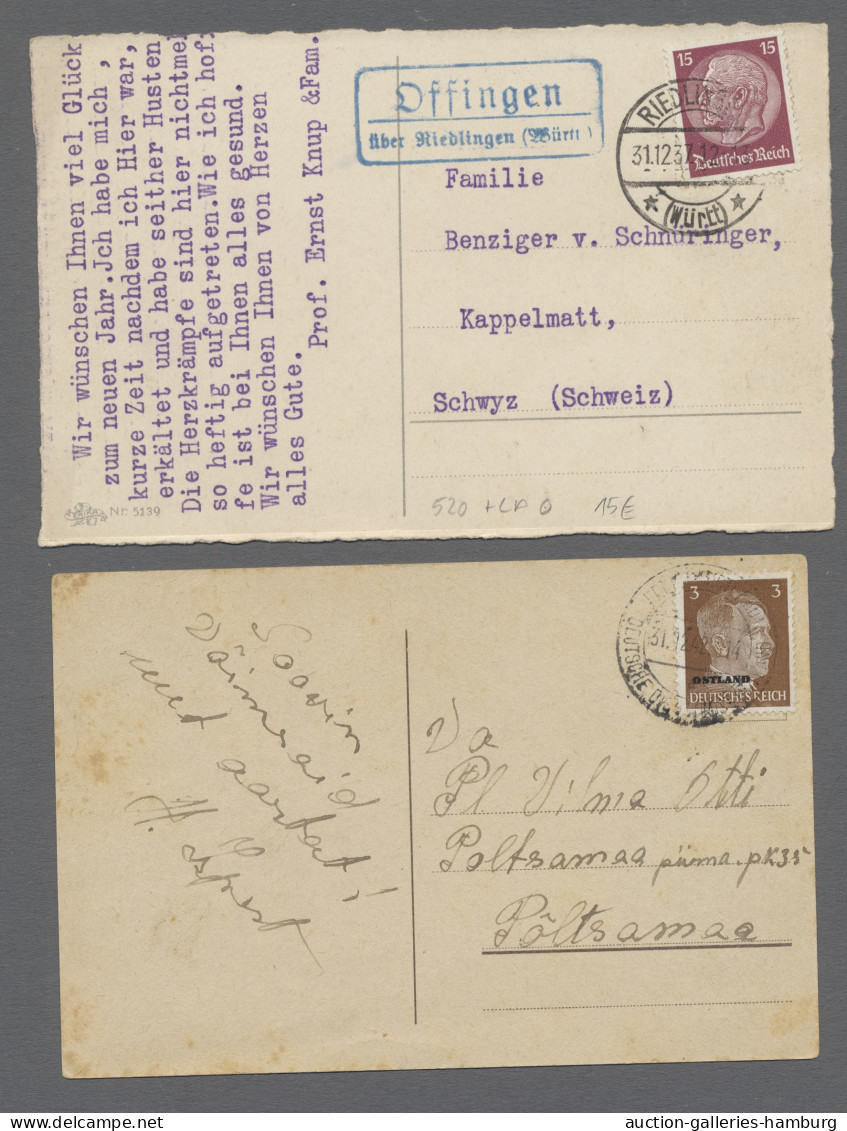 Wir wünschen Ihnen viel Glück
zum neuen Jahr.Jch habe mich ,
kurze Zeit nachdem ich Hier war,
erkältet und habe seither Husten
Die Herzkrämpfe sind hier nichtmeh
so heftig aufgetreten.Wie ich hof-
fe ist bei Ihnen alles gesund.
Wir wünschen Ihnen von Herzen
alles Gute.
Prof. Ernst Knup &Fam.
Nr. 5139
Offingen
über Riedlingen (Württ)
RIEDLINGEN
31.12.37
(Württ)
15 15
Deutsches Reich
Familie
Benziger v. Schnüringer,
Kappelmatt,
Schwyz (Schweiz)
520 15€
Soovin
met aastat!
3 3
OSTLAND
DEUTSCHES REICH
31.12.42
DEUTSCHE
Va
Pl Vilma Otti
Poltsamaa piima.pk35
Põltsamaa
auction-galleries-hamburg